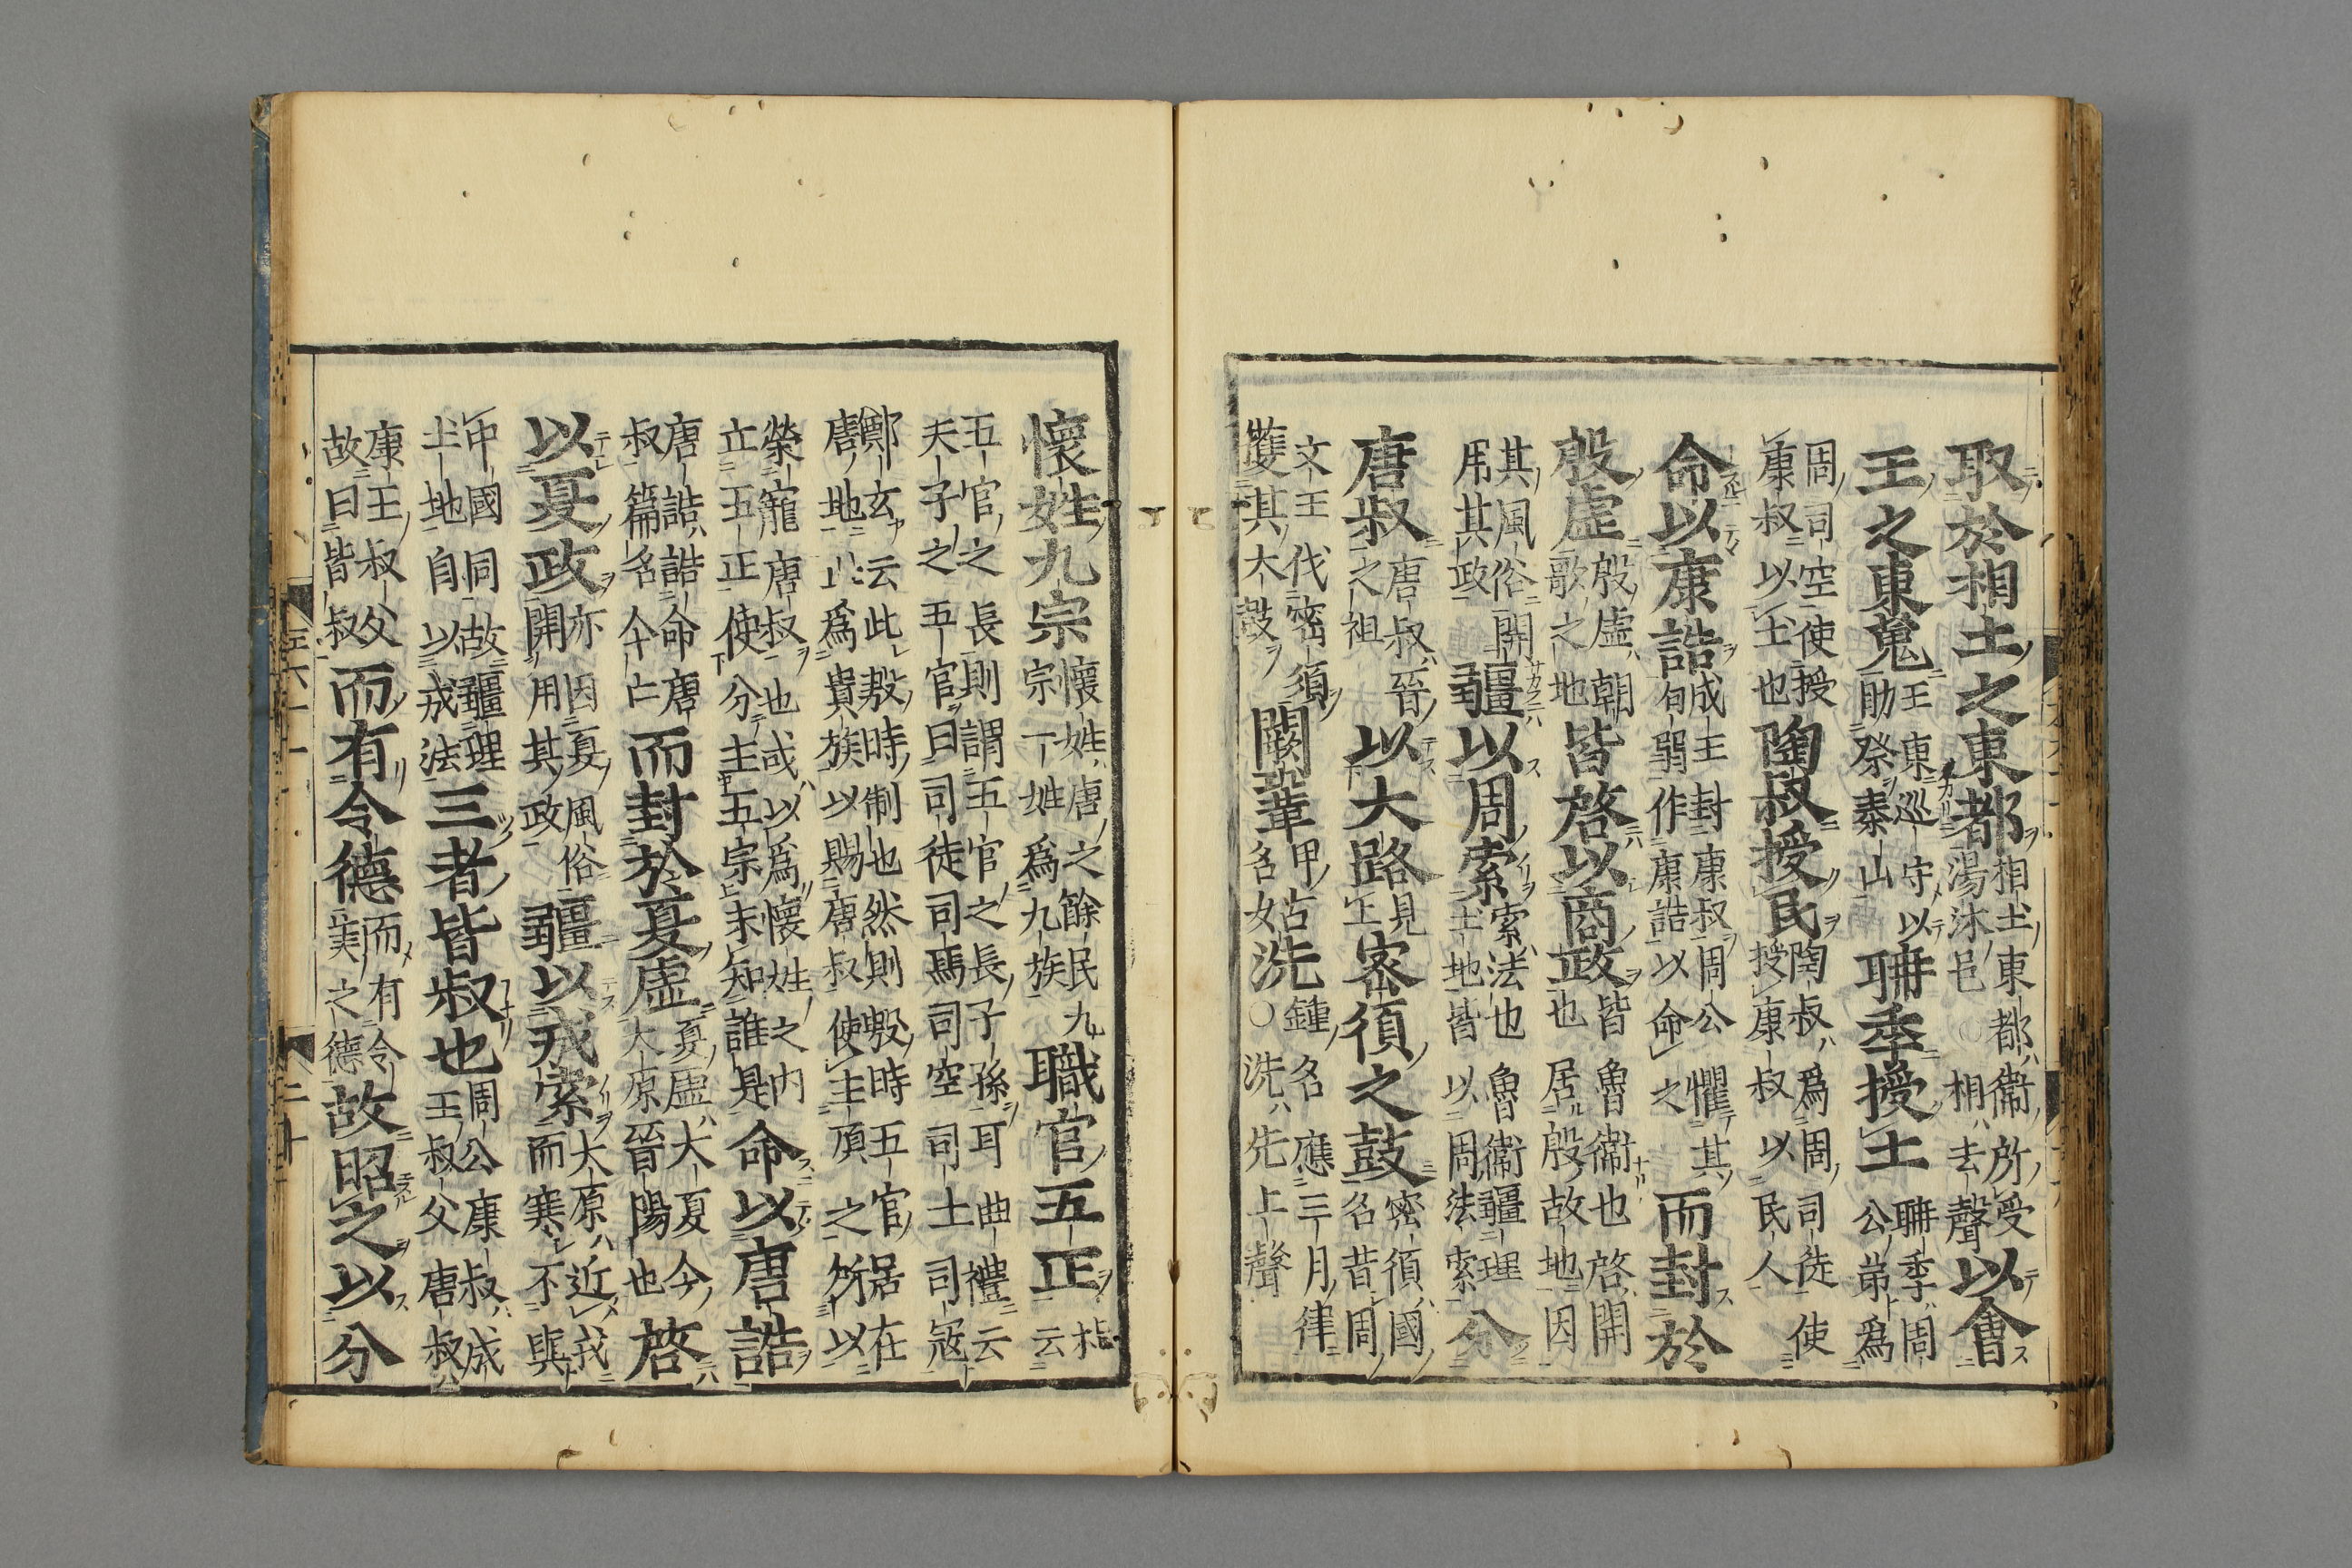 取於相土之東都相土東都衞所受以會
湯沐邑〇相去聲
王之東蒐王東巡守以聃季授土聃季周
助祭泰山公弟爲
周司空使授陶叔授民陶叔爲周司徒使
康叔以土也授康叔以民人
命以康誥成王封康叔周公懼其而封於
旬弱作康誥以命之
殷虛殷虛朝皆啓以商政皆魯衞也啓開
歌之地也居殷故地因
其風俗開疆以周索索法也魯衞疆理分
用其政土地皆以周法索
唐叔唐叔晉以大路見密須之鼓密須國
之祖上名昔周
文王伐密須闕鞏甲古洗鍾名應三月律
獲其大鼓名女〇洗先上聲
懷姓九宗懷姓唐之餘民九職官五正杜
宗一姓爲九族云
五官之長則謂五官之長子孫耳曲禮云
夫子之五官曰司徒司馬司空司士司冦
鄭玄云此殷時制也然則殷時五官居在
唐地以爲貴族以賜唐叔使主頂之所以
榮寵唐叔也或以爲懷姓之内命以唐誥
立五正使分主五宗未知誰是
唐誥誥命唐而封於夏虛夏虛大夏今啓
叔篇名今亡大原晉陽也
以夏政亦因夏風俗疆以戎索大原近戎
開用其政而寒不與
中國同故疆理三者皆叔也周公康叔成
土地自以戎法王叔父唐叔
康王叔父而有令德而有令故昭之以分
故曰皆叔美之德
二十